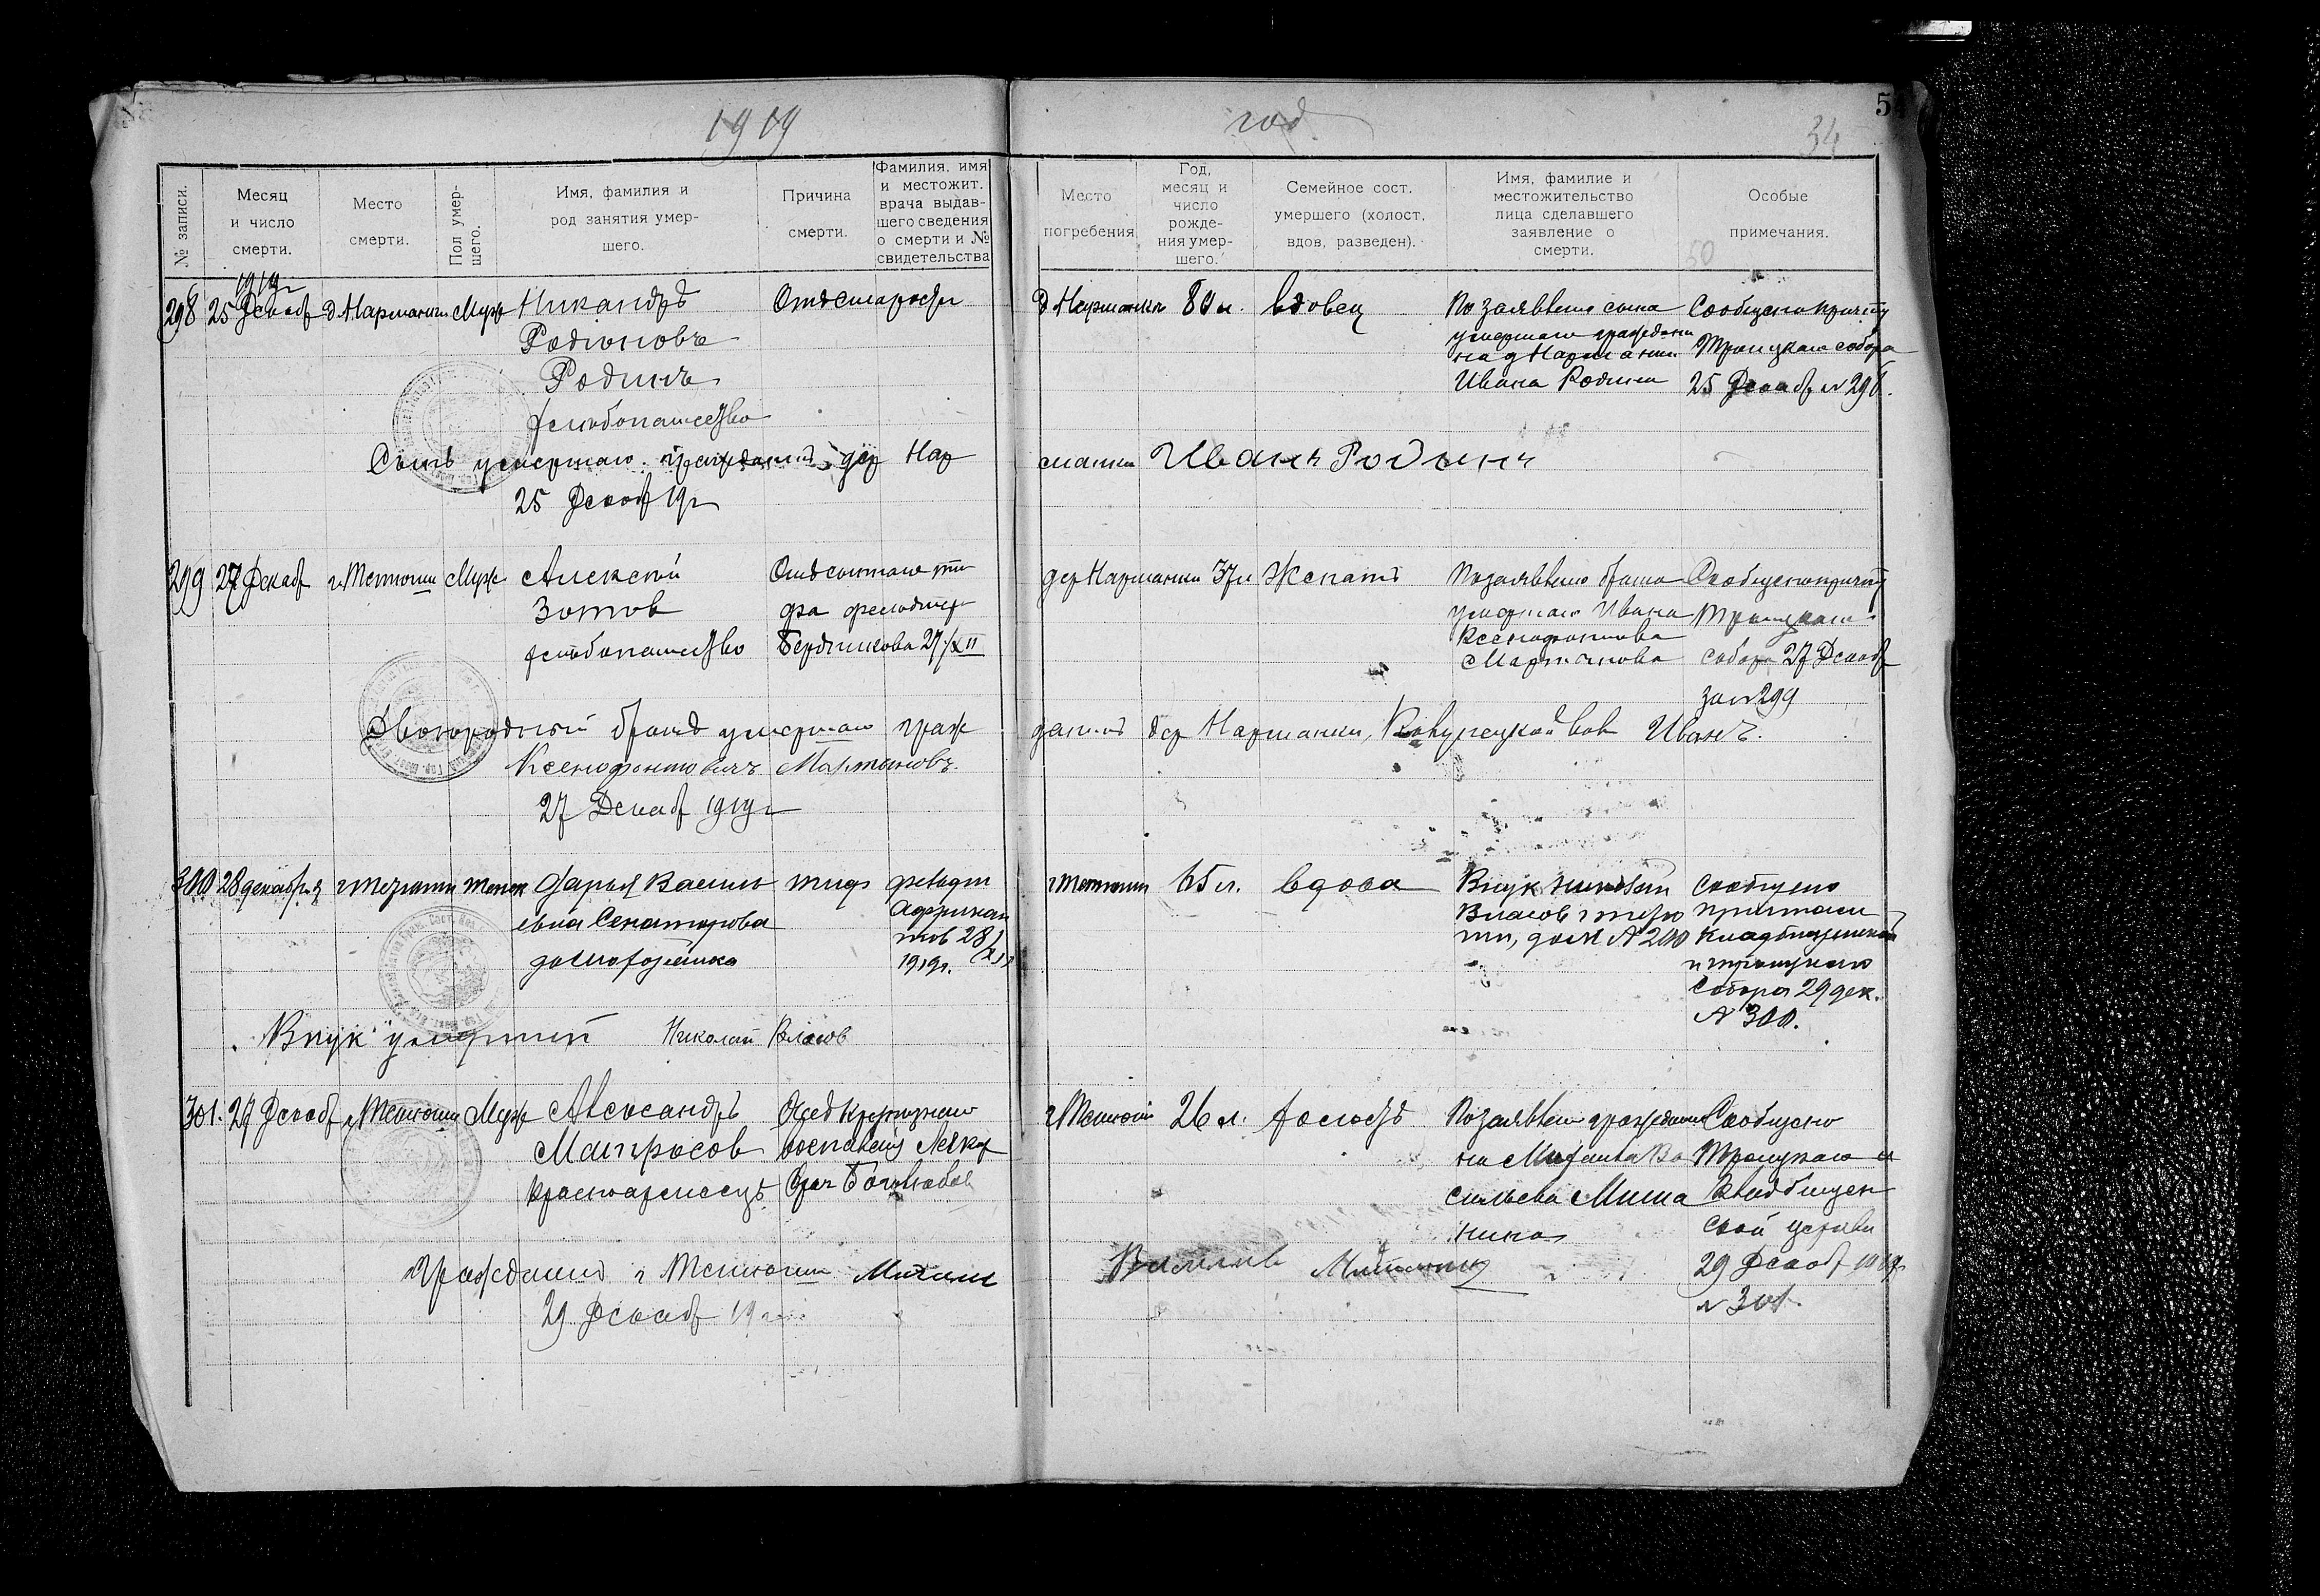 1919 год
34
№ записи.
Месяц и число смерти.
Место смерти.
Пол умершего.
Имя, фамилия и род занятия умер-
шего.
Причина смерти.
Фамилия, имя
и местожит.
врача выдав-
шего сведения
о смерти и №
свидетельства
Место погребения
Год,
месяц и
число
рожде-
ния умер-
шего.
Семейное сост.
умершего (холост,
вдов, разведен).
Имя, фамилие и
местожительство
лица сделавшего
заявление о
смерти.
Особые
примечания.
50
1919г
298 25 Декаб Муж Никандръ
Родіоновъ
Родинъ
хлѣбопашество
Отъ старости
вдовец
По заявлению сына
умершаго
Ивана Родина
Сообщено причту
Троицкаго собора
25 Декаб
Сынъ умершаго гражданинъ дер Нар
Иванъ Родинъ
25 Декаб 19г
299 27 Декаб г Тетюши Муж Алексѣй
Зотов
хлѣбопашество
Отъ сыпного ти
фа
Бердникова 27/XII
37л Женатъ
По заявлению брата
умершаго Ивана
Ксенофонтова
Мартынова
Сообщено причту
Троицкаго
собора 27 Декаб
за № 299
Двоюродный братъ умершаго граж
Иванъ
Ксенофонтовичъ Мартыновъ
27 Декаб 1919г
300 28 декабря г Тетюши женск Дарья Василь
евна Сенаторова
домохозяйка
тиф
28/XII
1919г.
г Тетюши 65л. вдова
Внук Николай
Власов г Тетю
ши, дом № 200
Сообщено
причтам
Кладбищенской
и Троицкаго
Собора 29 дек.
№ 300.
Внук умершей Николай Власов
301. 27 Декаб г Тетюши Муж Александръ
Матросов
Красноармеецъ
Отъ крупознаго
воспаленія легк
Врач Боголюбов
г Тетюши 26л. холостъ
По заявлению граждани
на Михаила Ва
сильева Миша
нина
Сообщено
Троицкаго и
Кладбищен
ской церкви
29 Декаб 1919г
№ 301.
Гражданинъ г Тетюши Михаил
29 Декаб 19